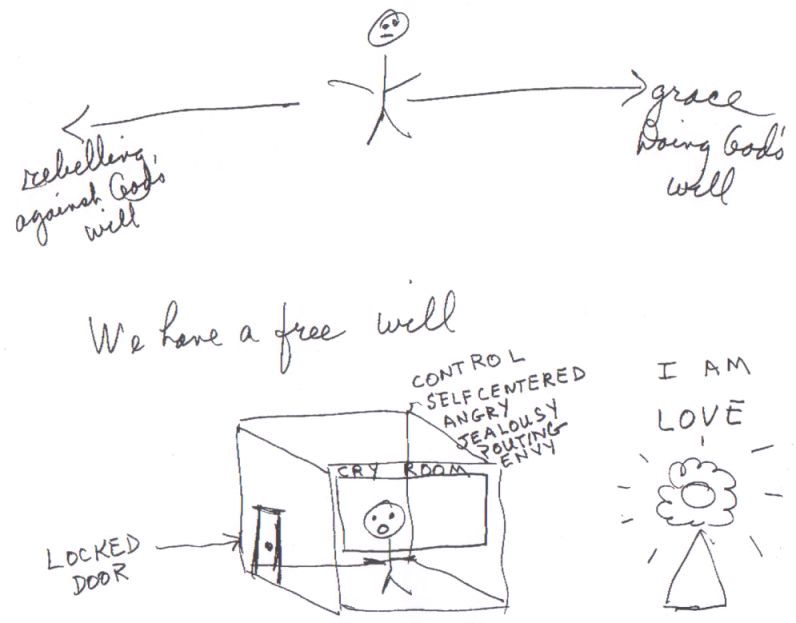 grace
Doing God's
will
rebelling
against God's
will
We have a free will
CONTROL
SELFCENTERED
ANGRY
JEALOUSY
POUTING
ENVY
CRY ROOM
LOCKED
DOOR
I AM
LOVE